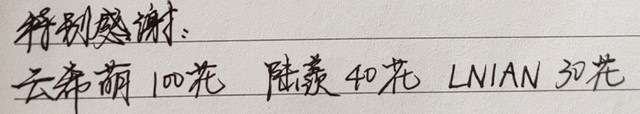 特别感谢:
云希萌 100花 陆羡 40花 LNIAN 30花